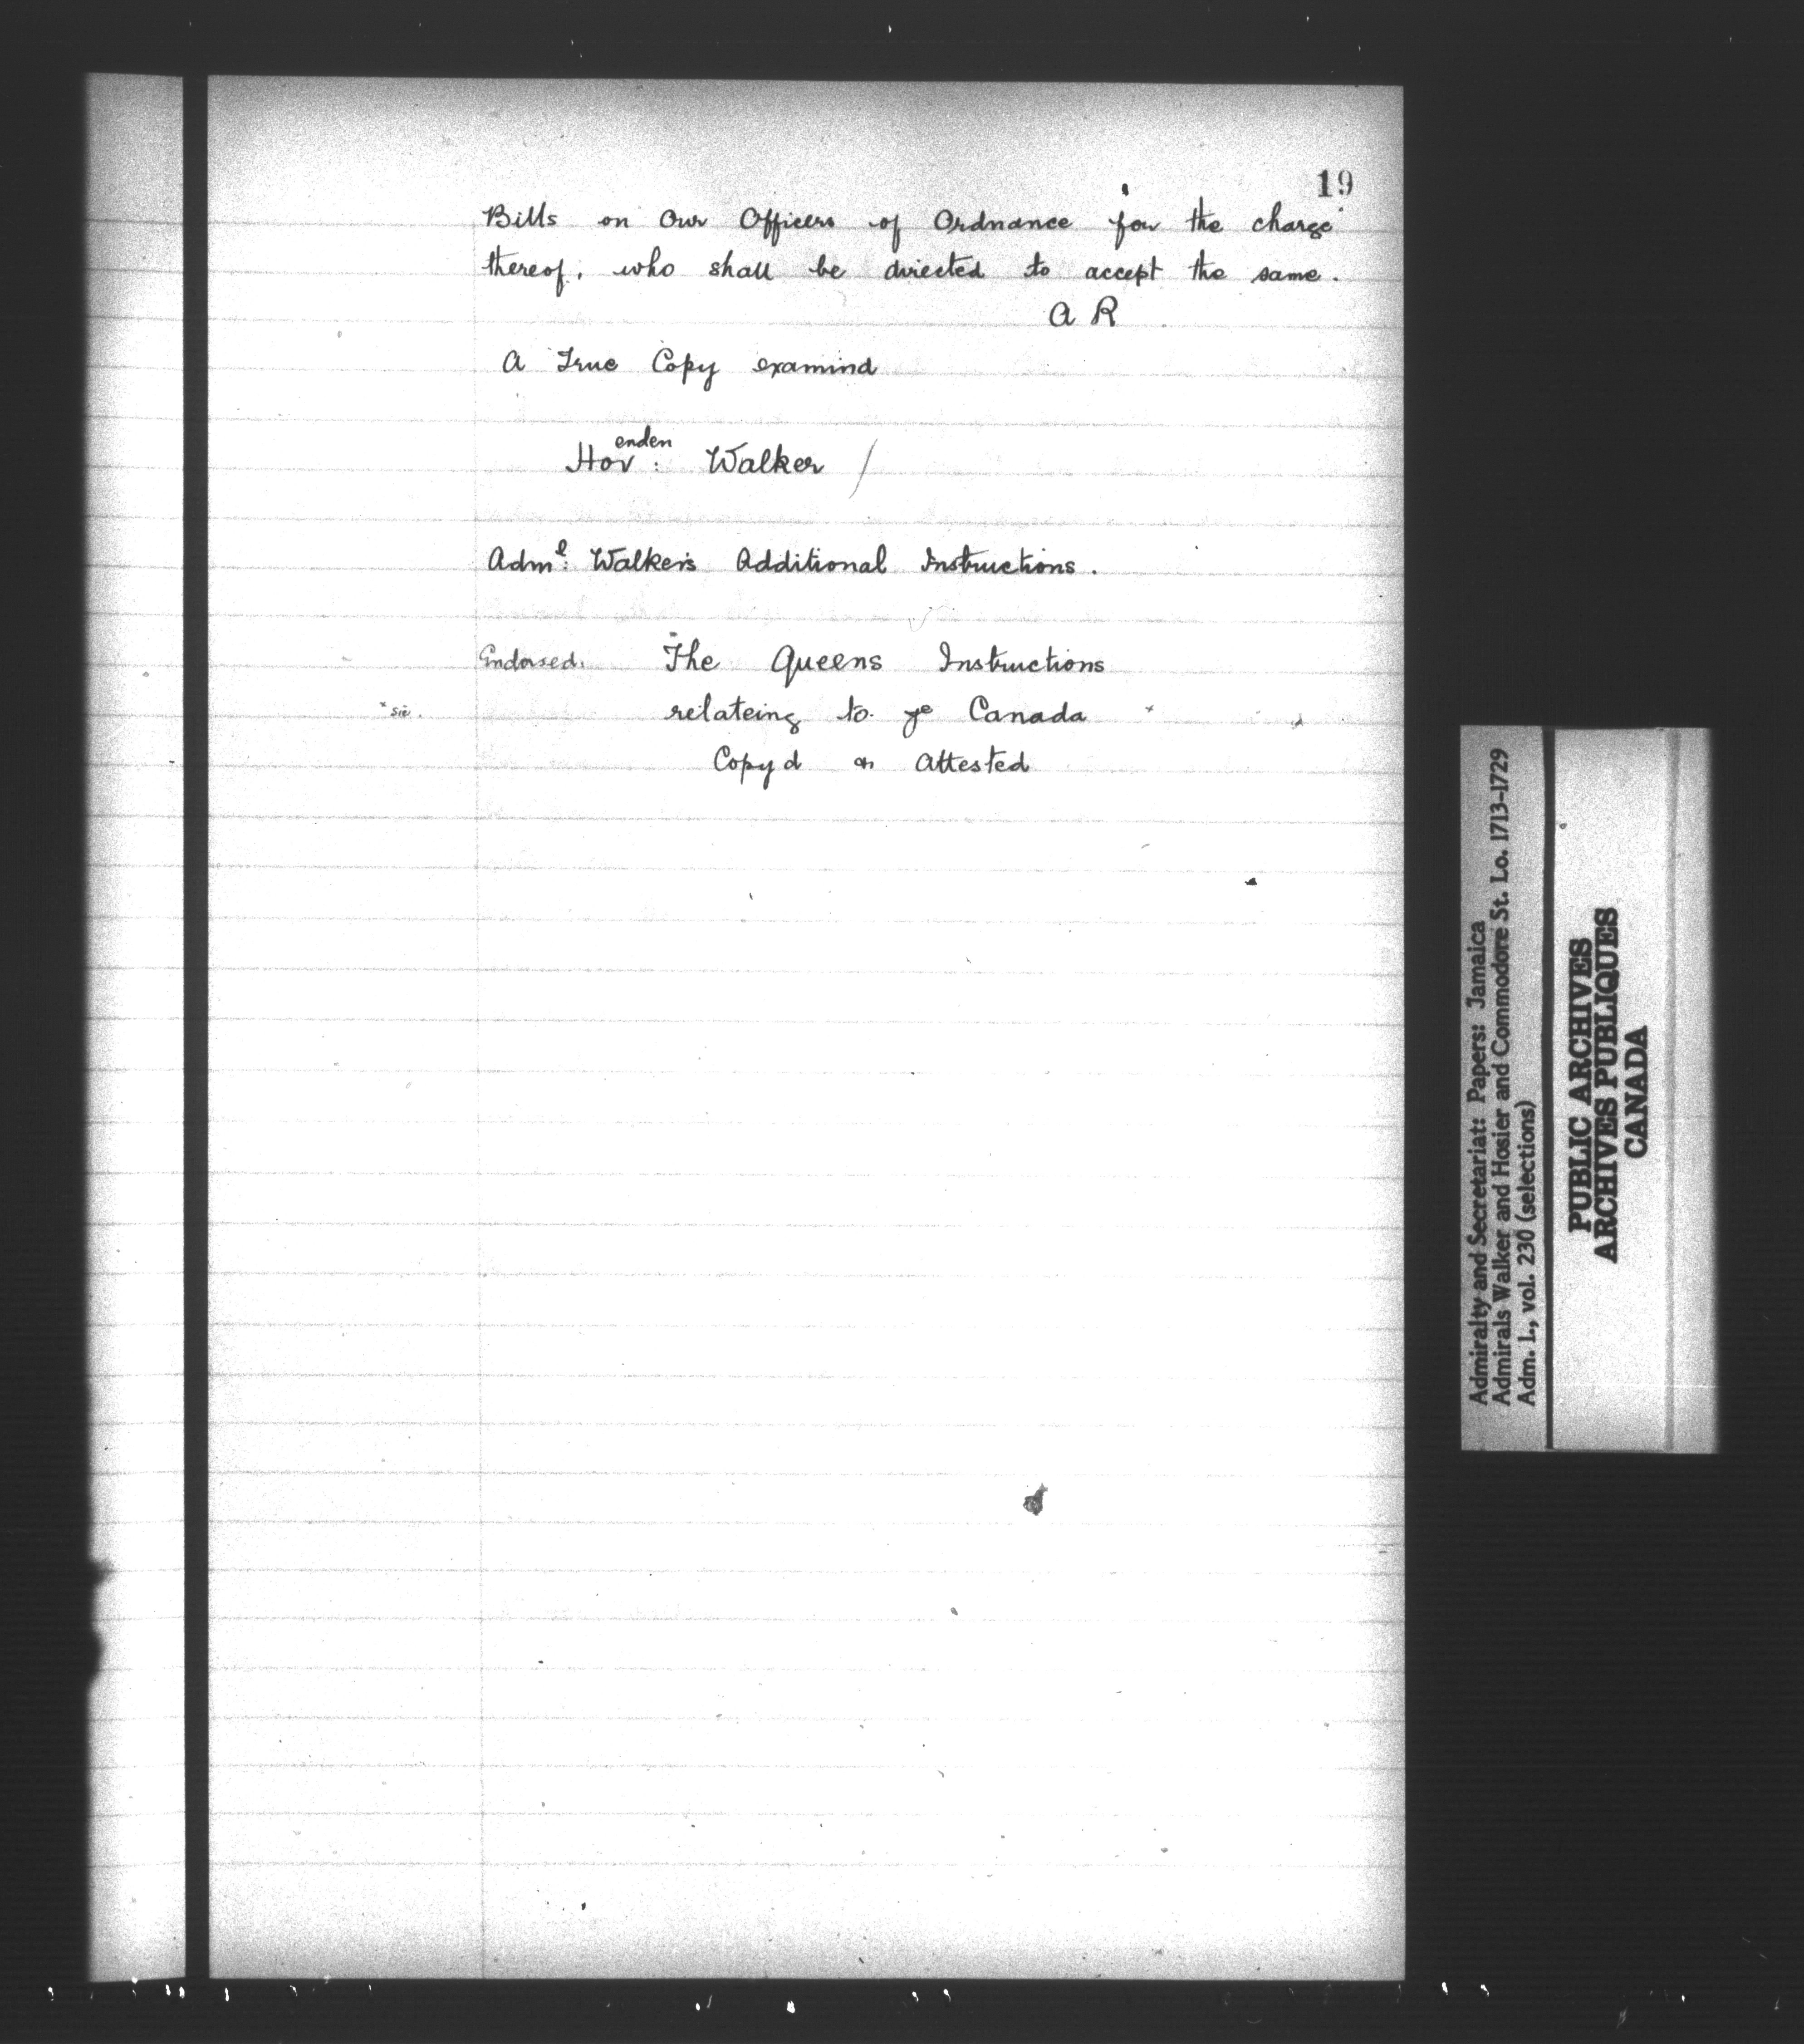 19
Bills on Our Officers of Ordnance for the charge
thereof, who shall be directed to accept the same.
A R
A True Copy examind
Hov:enden Walker /
Adml: Walker's Additional Instructions.
Endorsed. The Queens Instructions
* sic. relateing to ye Canada *
Copyd & Attested
Admiralty and Secretariat: Papers: Jamaica
Admirals Walker and Hosier and Commodore St. Lo. 1713-1729
Adm. 1., vol. 230 (selections)
PUBLIC ARCHIVES
ARCHIVES PUBLIQUES
CANADA